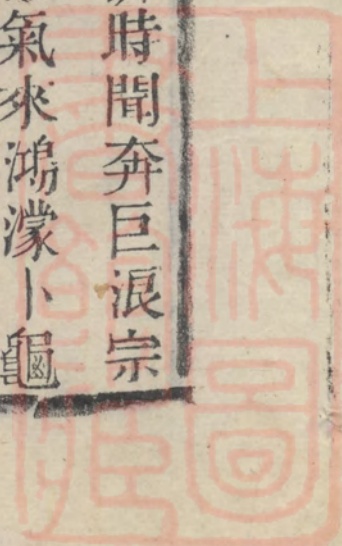 時聞奔巨浪宗
氣來鴻濛卜龜
上海圖